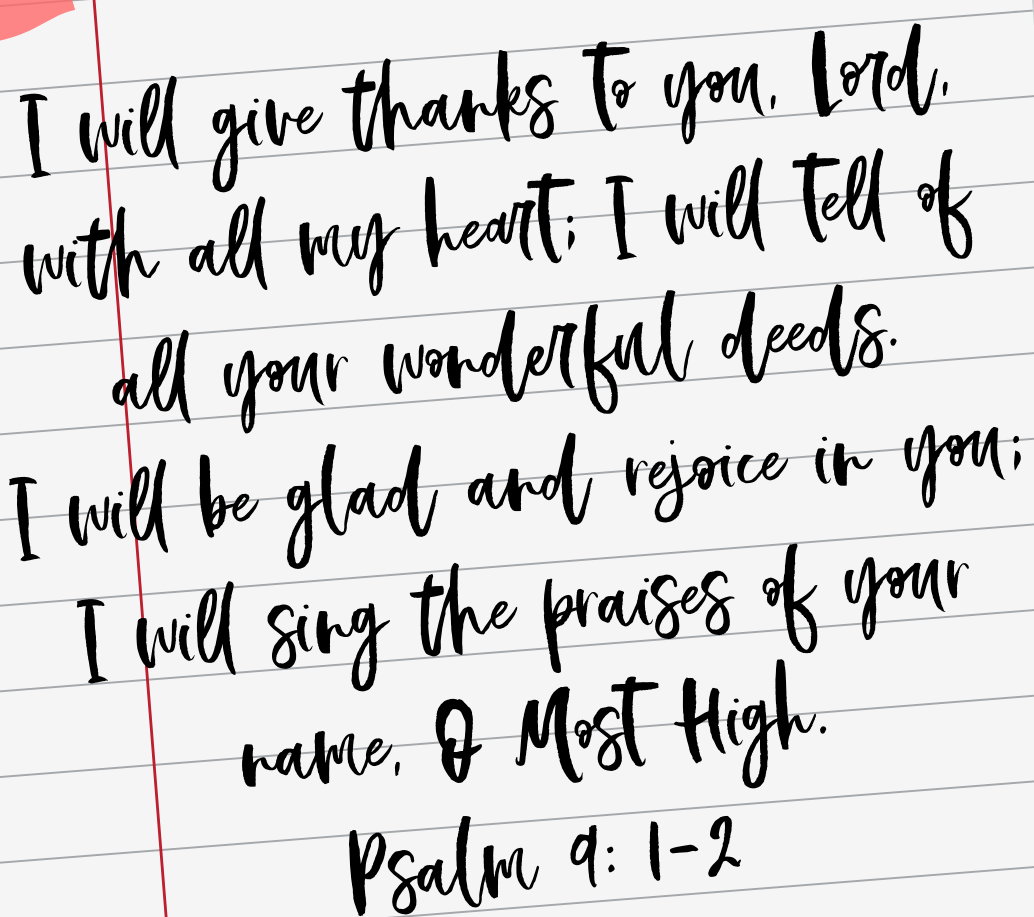 I will give thanks to you, Lord,
with all my heart; I will tell of
all your wonderful deeds.
I will be glad and rejoice in you;
I will sing the praises of your
name, O Most High.
Psalm 9: 1-2